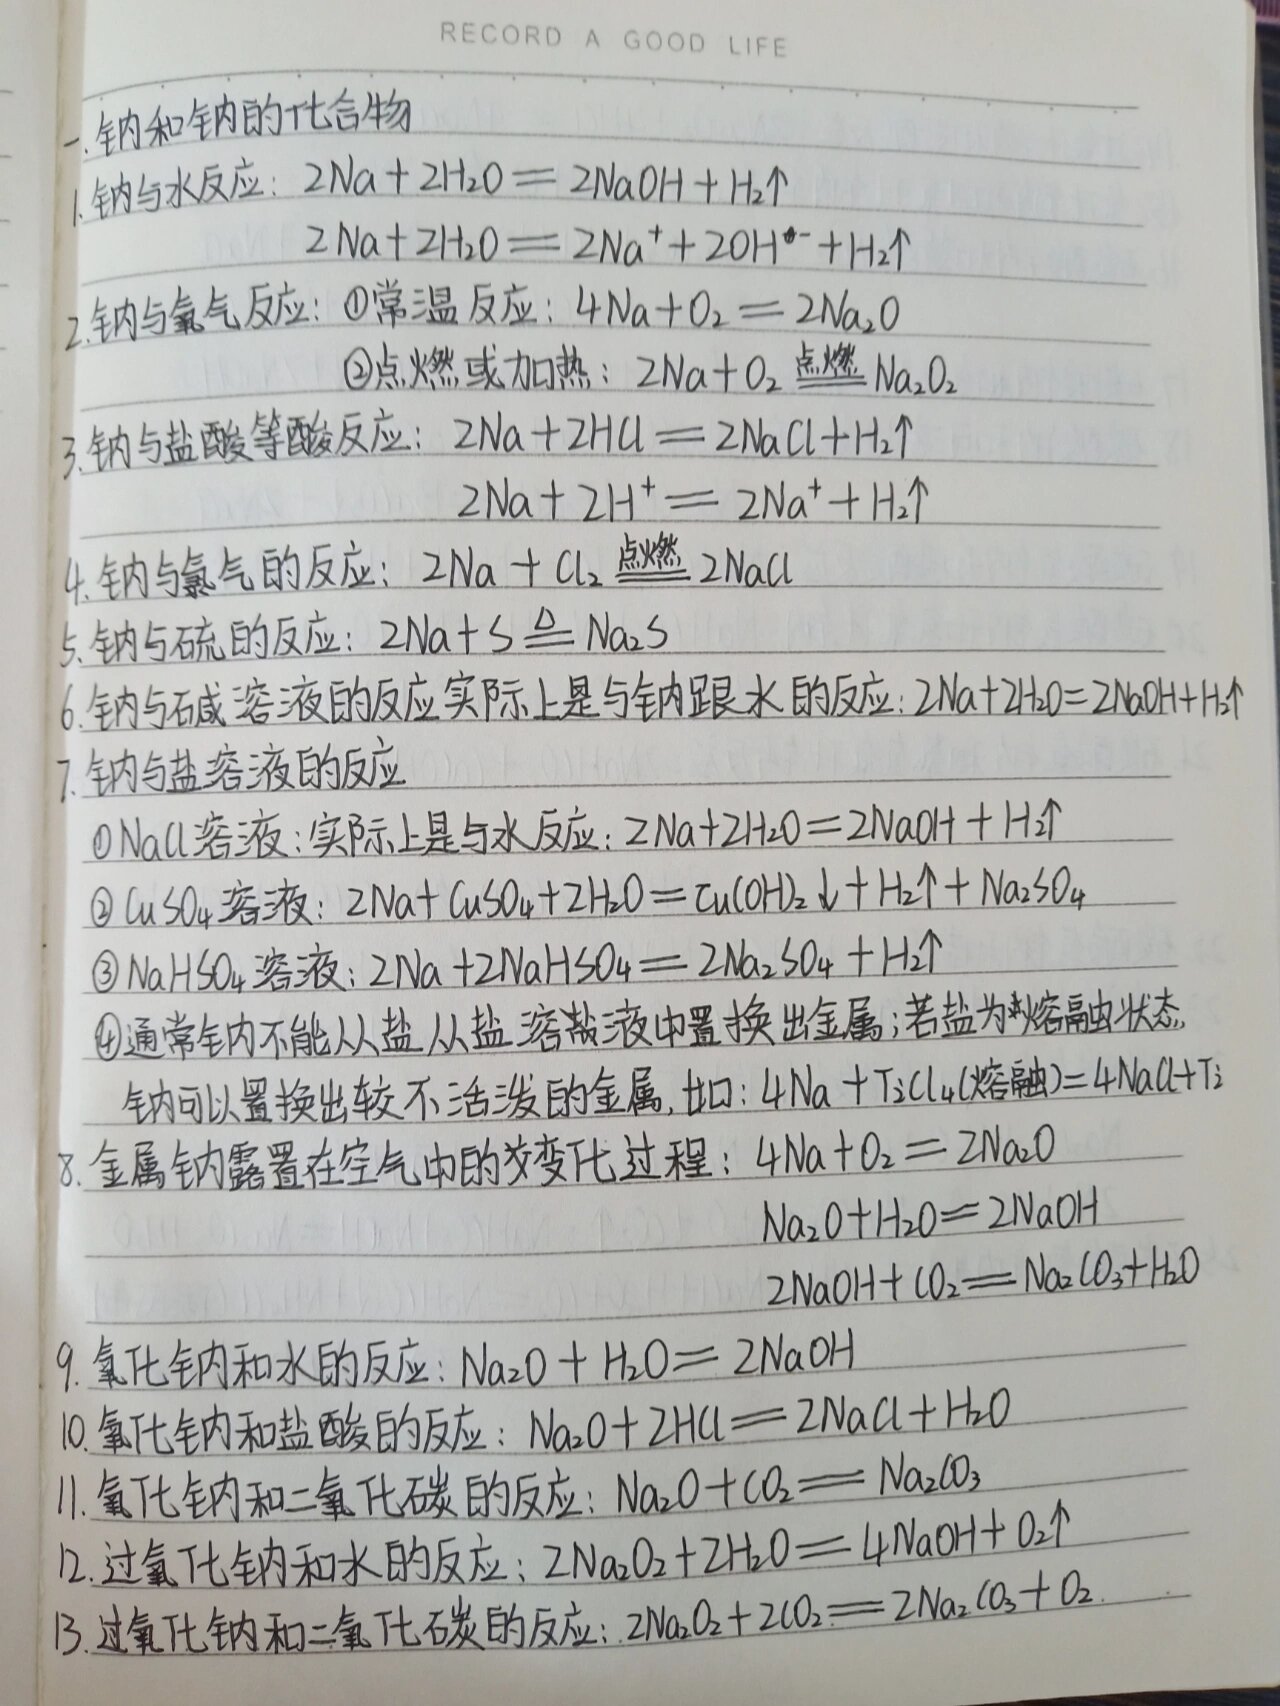 RECORD A GOOD LIFE
一.钠和钠的化合物
1.钠与水反应: 2Na+2H₂O=2NaOH+H₂↑
2Na+2H₂O=2Na⁺+2OH⁻+H₂↑
2.钠与氧气反应:①常温反应: 4Na+O₂=2Na₂O
②点燃或加热: 2Na+O₂ 点燃= Na₂O₂
3.钠与盐酸等酸反应: 2Na+2HCl=2NaCl+H₂↑
2Na+2H⁺=2Na⁺+H₂↑
4.钠与氯气的反应: 2Na+Cl₂ 点燃= 2NaCl
5.钠与硫的反应: 2Na+S △= Na₂S
6.钠与碱溶液的反应实际上是与钠跟水的反应:2Na+2H₂O=2NaOH+H₂↑
7.钠与盐溶液的反应
①NaCl溶液:实际上是与水反应:2Na+2H₂O=2NaOH+H₂↑
②CuSO₄溶液: 2Na+CuSO₄+2H₂O=Cu(OH)₂↓+H₂↑+Na₂SO₄
③NaHSO₄溶液:2Na+2NaHSO₄=2Na₂SO₄+H₂↑
④通常钠不能从盐从盐溶液中置换出金属;若盐为熔融状态,
钠可以置换出较不活泼的金属,如:4Na+TiCl₄(熔融)=4NaCl+Ti
8.金属钠露置在空气中的变化过程: 4Na+O₂=2Na₂O
Na₂O+H₂O=2NaOH
2NaOH+CO₂=Na₂CO₃+H₂O
9.氧化钠和水的反应:Na₂O+H₂O=2NaOH
10.氧化钠和盐酸的反应: Na₂O+2HCl=2NaCl+H₂O
11.氧化钠和二氧化碳的反应: Na₂O+CO₂=Na₂CO₃
12.过氧化钠和水的反应: 2Na₂O₂+2H₂O=4NaOH+O₂↑
13.过氧化钠和二氧化碳的反应: 2Na₂O₂+2CO₂=2Na₂CO₃+O₂